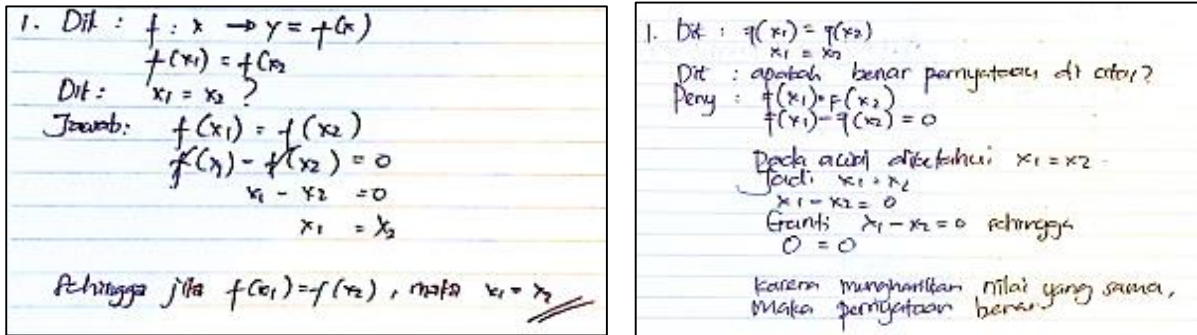 1. Dik : f : x → y = f(x)
f(x₁) = f(x₂
Dit : x₁ = x₂ ?
Jawab: f(x₁) = f(x₂)
f(x₁) - f(x₂) = 0
x₁ - x₂ = 0
x₁ = x₂
Sehingga jika f(x₁) = f(x₂), maka x₁ = x₂
1. Dik : f(x₁) = f(x₂)
x₁ = x₂
Dit : apakah benar pernyataan di atas?
Peny : f(x₁) = f(x₂)
f(x₁) - f(x₂) = 0
Pada awal diketahui x₁ = x₂
Jadi x₁ = x₂
x₁ - x₂ = 0
Ganti x₁ - x₂ = 0 sehingga
0 = 0
karena menghasilkan nilai yang sama,
Maka pernyataan benar.